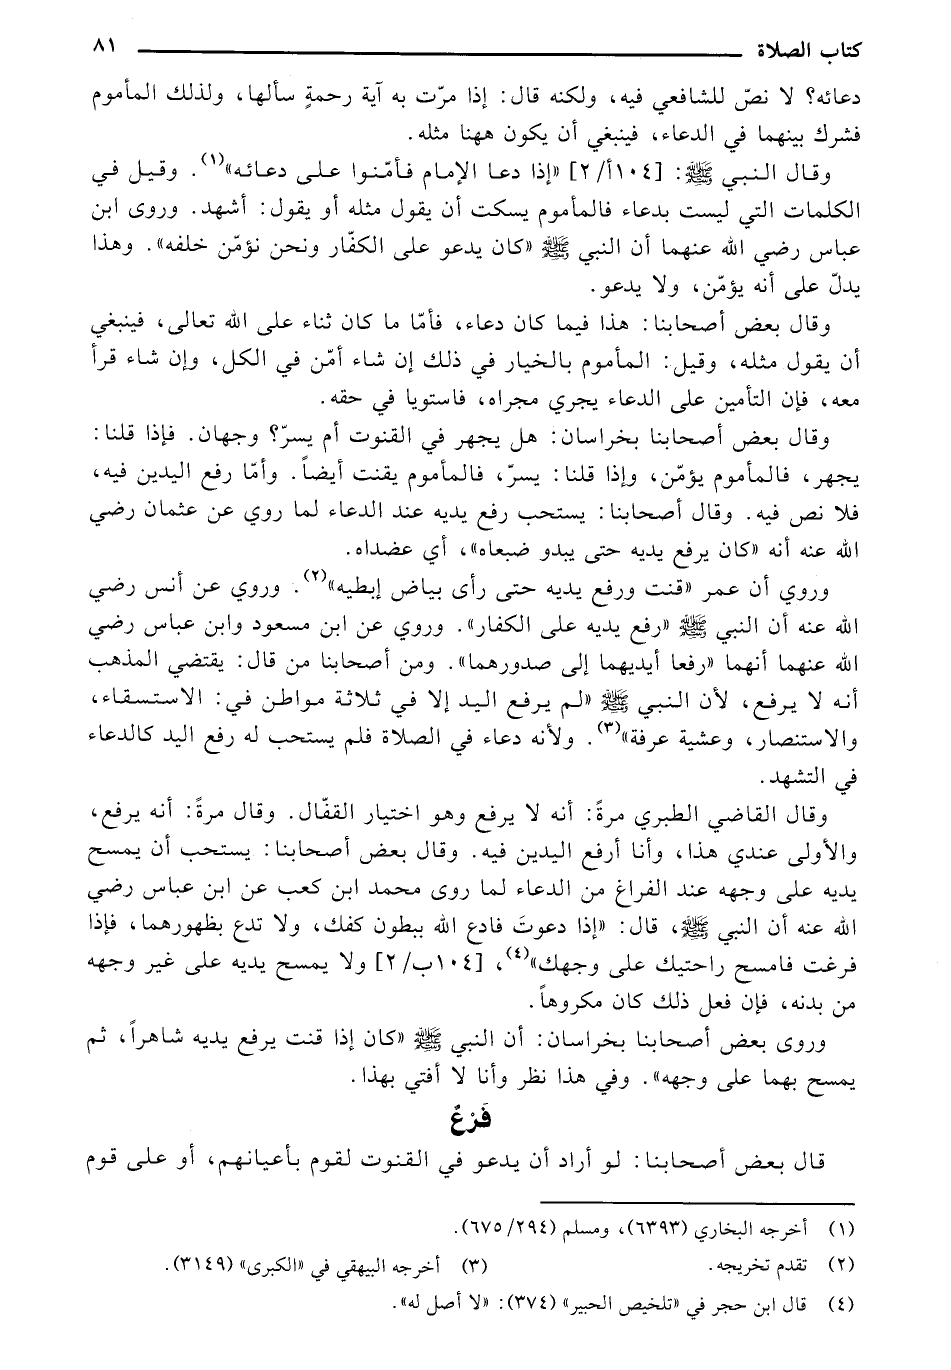 كتاب الصلاة ٨١
دعائه؟ لا نصّ للشافعي فيه، ولكنه قال: إذا مرّت به آية رحمةٍ سألها، ولذلك المأموم
فشرك بينهما في الدعاء، فينبغي أن يكون ههنا مثله.
وقال النبي ﷺ: [١٠٤أ/٢] «إذا دعا الإمام فأمّنوا على دعائه»(١). وقيل في
الكلمات التي ليست بدعاء فالمأموم يسكت أن يقول مثله أو يقول: أشهد. وروى ابن
عباس رضي الله عنهما أن النبي ﷺ «كان يدعو على الكفّار ونحن نؤمّن خلفه». وهذا
يدلّ على أنه يؤمّن، ولا يدعو.
وقال بعض أصحابنا: هذا فيما كان دعاء، فأمّا ما كان ثناء على الله تعالى، فينبغي
أن يقول مثله، وقيل: المأموم بالخيار في ذلك إن شاء أمّن في الكل، وإن شاء قرأ
معه، فإن التأمين على الدعاء يجري مجراه، فاستويا في حقه.
وقال بعض أصحابنا بخراسان: هل يجهر في القنوت أم يسرّ؟ وجهان. فإذا قلنا:
يجهر، فالمأموم يؤمّن، وإذا قلنا: يسرّ، فالمأموم يقنت أيضاً. وأمّا رفع اليدين فيه،
فلا نص فيه. وقال أصحابنا: يستحب رفع يديه عند الدعاء لما روي عن عثمان رضي
الله عنه أنه «كان يرفع يديه حتى يبدو ضبعاه»، أي عضداه.
وروي أن عمر «قنت ورفع يديه حتى رأى بياض إبطيه»(٢). وروي عن أنس رضي
الله عنه أن النبي ﷺ «رفع يديه على الكفار». وروي عن ابن مسعود وابن عباس رضي
الله عنهما أنهما «رفعا أيديهما إلى صدورهما». ومن أصحابنا من قال: يقتضي المذهب
أنه لا يرفع، لأن النبي ﷺ «لم يرفع اليد إلا في ثلاثة مواطن في: الاستسقاء،
والاستنصار، وعشية عرفة»(٣). ولأنه دعاء في الصلاة فلم يستحب له رفع اليد كالدعاء
في التشهد.
وقال القاضي الطبري مرةً: أنه لا يرفع وهو اختيار القفّال. وقال مرةً: أنه يرفع،
والأولى عندي هذا، وأنا أرفع اليدين فيه. وقال بعض أصحابنا: يستحب أن يمسح
يديه على وجهه عند الفراغ من الدعاء لما روى محمد ابن كعب عن ابن عباس رضي
الله عنه أن النبي ﷺ، قال: «إذا دعوتَ فادع الله ببطون كفك، ولا تدع بظهورهما، فإذا
فرغت فامسح راحتيك على وجهك»(٤)، [١٠٤ب/٢] ولا يمسح يديه على غير وجهه
من بدنه، فإن فعل ذلك كان مكروهاً.
وروى بعض أصحابنا بخراسان: أن النبي ﷺ «كان إذا قنت يرفع يديه شاهراً، ثم
يمسح بهما على وجهه». وفي هذا نظر وأنا لا أفتي بهذا.
فَرْعٌ
قال بعض أصحابنا: لو أراد أن يدعو في القنوت لقوم بأعيانهم، أو على قوم
(١) أخرجه البخاري (٦٣٩٣)، ومسلم (٢٩٤/ ٦٧٥).
(٢) تقدم تخريجه. (٣) أخرجه البيهقي في «الكبرى» (٣١٤٩).
(٤) قال ابن حجر في «تلخيص الحبير» (٣٧٤): «لا أصل له».